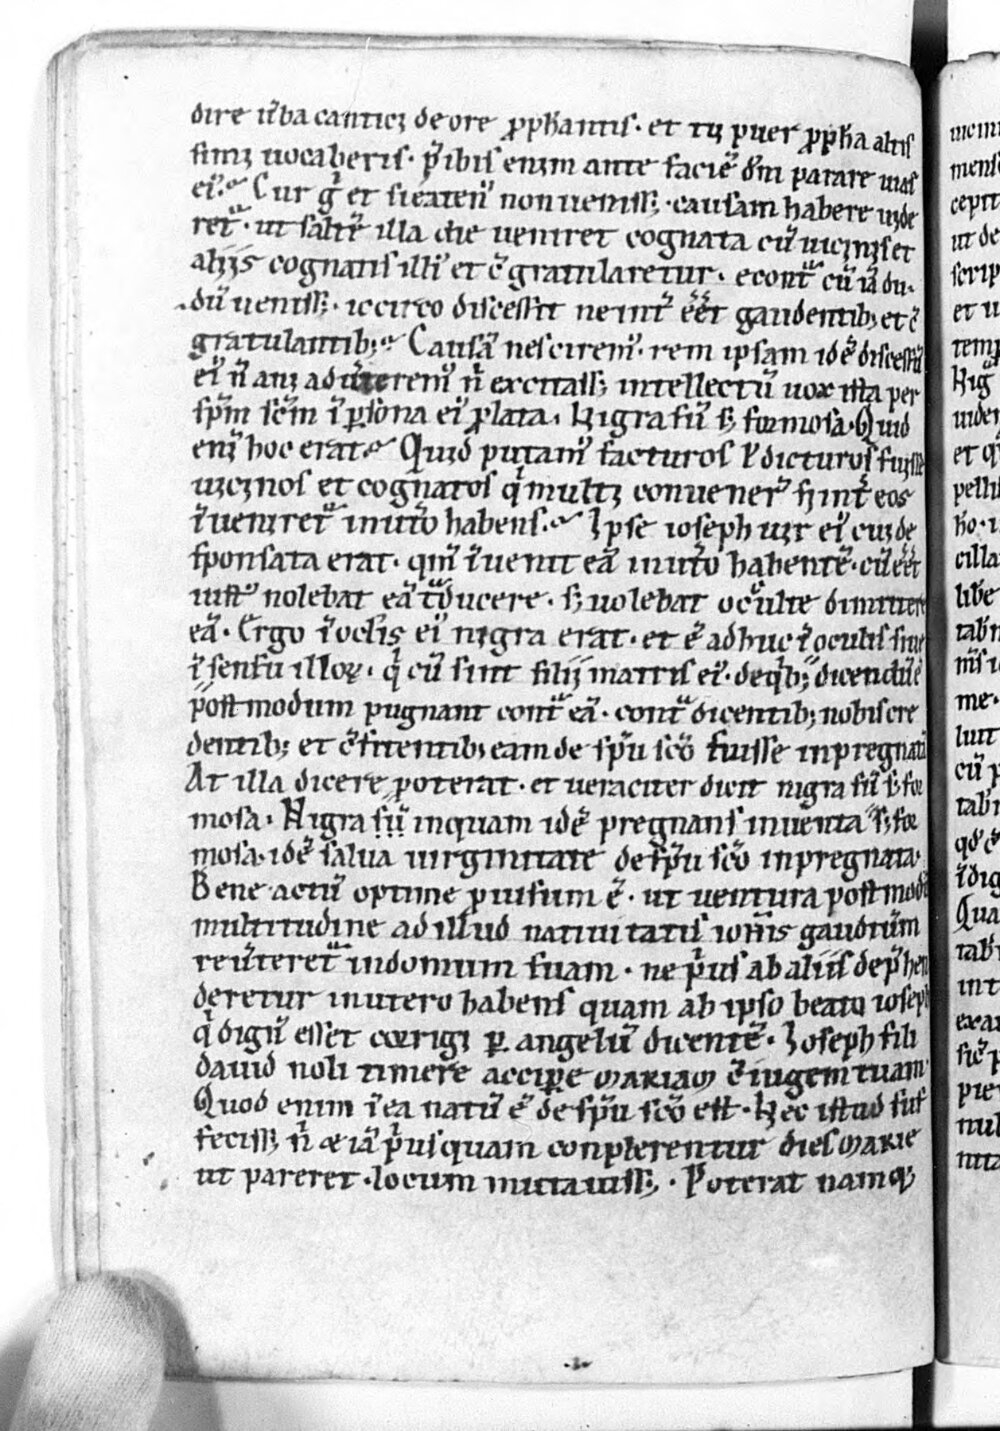 dire ũba cantici de ore ꝓphantis · et tu puer ꝓpha altis
simi uocaberis · p̃ibis enim ante faciẽ dñi parare uias
ei᷒ · Cur g̊ et si eaten᷒ non uenisſ; · causam habere uide
ret᷑ · ut saltẽ illa die ueniret cognata cũ uicinis et
aliis cognatis illi᷒ et c̃gratularetur · econt᷑ cũ iã du·
dũ uenisſ; · iccirco discessit ne int̃ eẽt gaudentib; et c̃
gratulantib; · Causã nesciremꝰ · rem ipsam idẽ discessũ
eiꝰ ñ animaduteremꝰ ñ excitasſ; intellectũ uox ista per
sp̃m sc̃m ĩ ꝑsona eiꝰ ꝓlata · Nigra sũ sꝫ formosa · Quid
eni hoc erat · Quid putamꝰ facturos ł dicturos fuisse
uicinos et cognatos q̇ multi conuener̃ si int̃ eos
ĩueniret᷑ in utõ habens · Ipse ioseph uir eiꝰ cui de
sponsata erat · qm̃ ĩuenit eã in utõ habentẽ · cũ eẽt
iustꝰ nolebat eã t᷑ducere · sꝫ uolebat occulte dimittere
eã · Ergo ĩ oclis eiꝰ nigra erat · et ẽ adhuc ĩ oculis siue
ĩ sensu illoꝝ · q̇ cũ sint filii matris eiꝰ · de qib; dicendũ ẽ
postmodum pugnant cont᷑ eã · cont᷑dicentib; nobis cre
dentib; et c̃fitentib; eam de sp̃u sc̃o fuisse inpregnatã
At illa dicere poterat · et ueraciter dicit nigra sũ sꝫ for
mosa · Nigra sũ inquam idẽ pregnans inuenta sꝫ for
mosa · idẽ salua uirginitate de sp̃u sc̃o inpregnata ·
Bene actũ optime ꝓuisum ẽ · ut uentura postmodũ
multitudine ad illud natiuitatis iohñis gaudium
reũteret᷑ in domum suam · ne p̃us ab aliis dep̃hen
deretur in utero habens quam ab ipso beato ioseph
q̇ dignꝰ esset corrigi ꝑ angelũ dicentẽ · Ioseph fili
dauid noli timere accipere mariam c̃iugem tuam
Quod enim ĩ ea natũ ẽ de sp̃u sc̃o est · Hec istud suf
fecisſ; ñ et iã p̃usquam conplerentur dies marie
ut pareret · locum mutauisſ; · Poterat namqꝫ